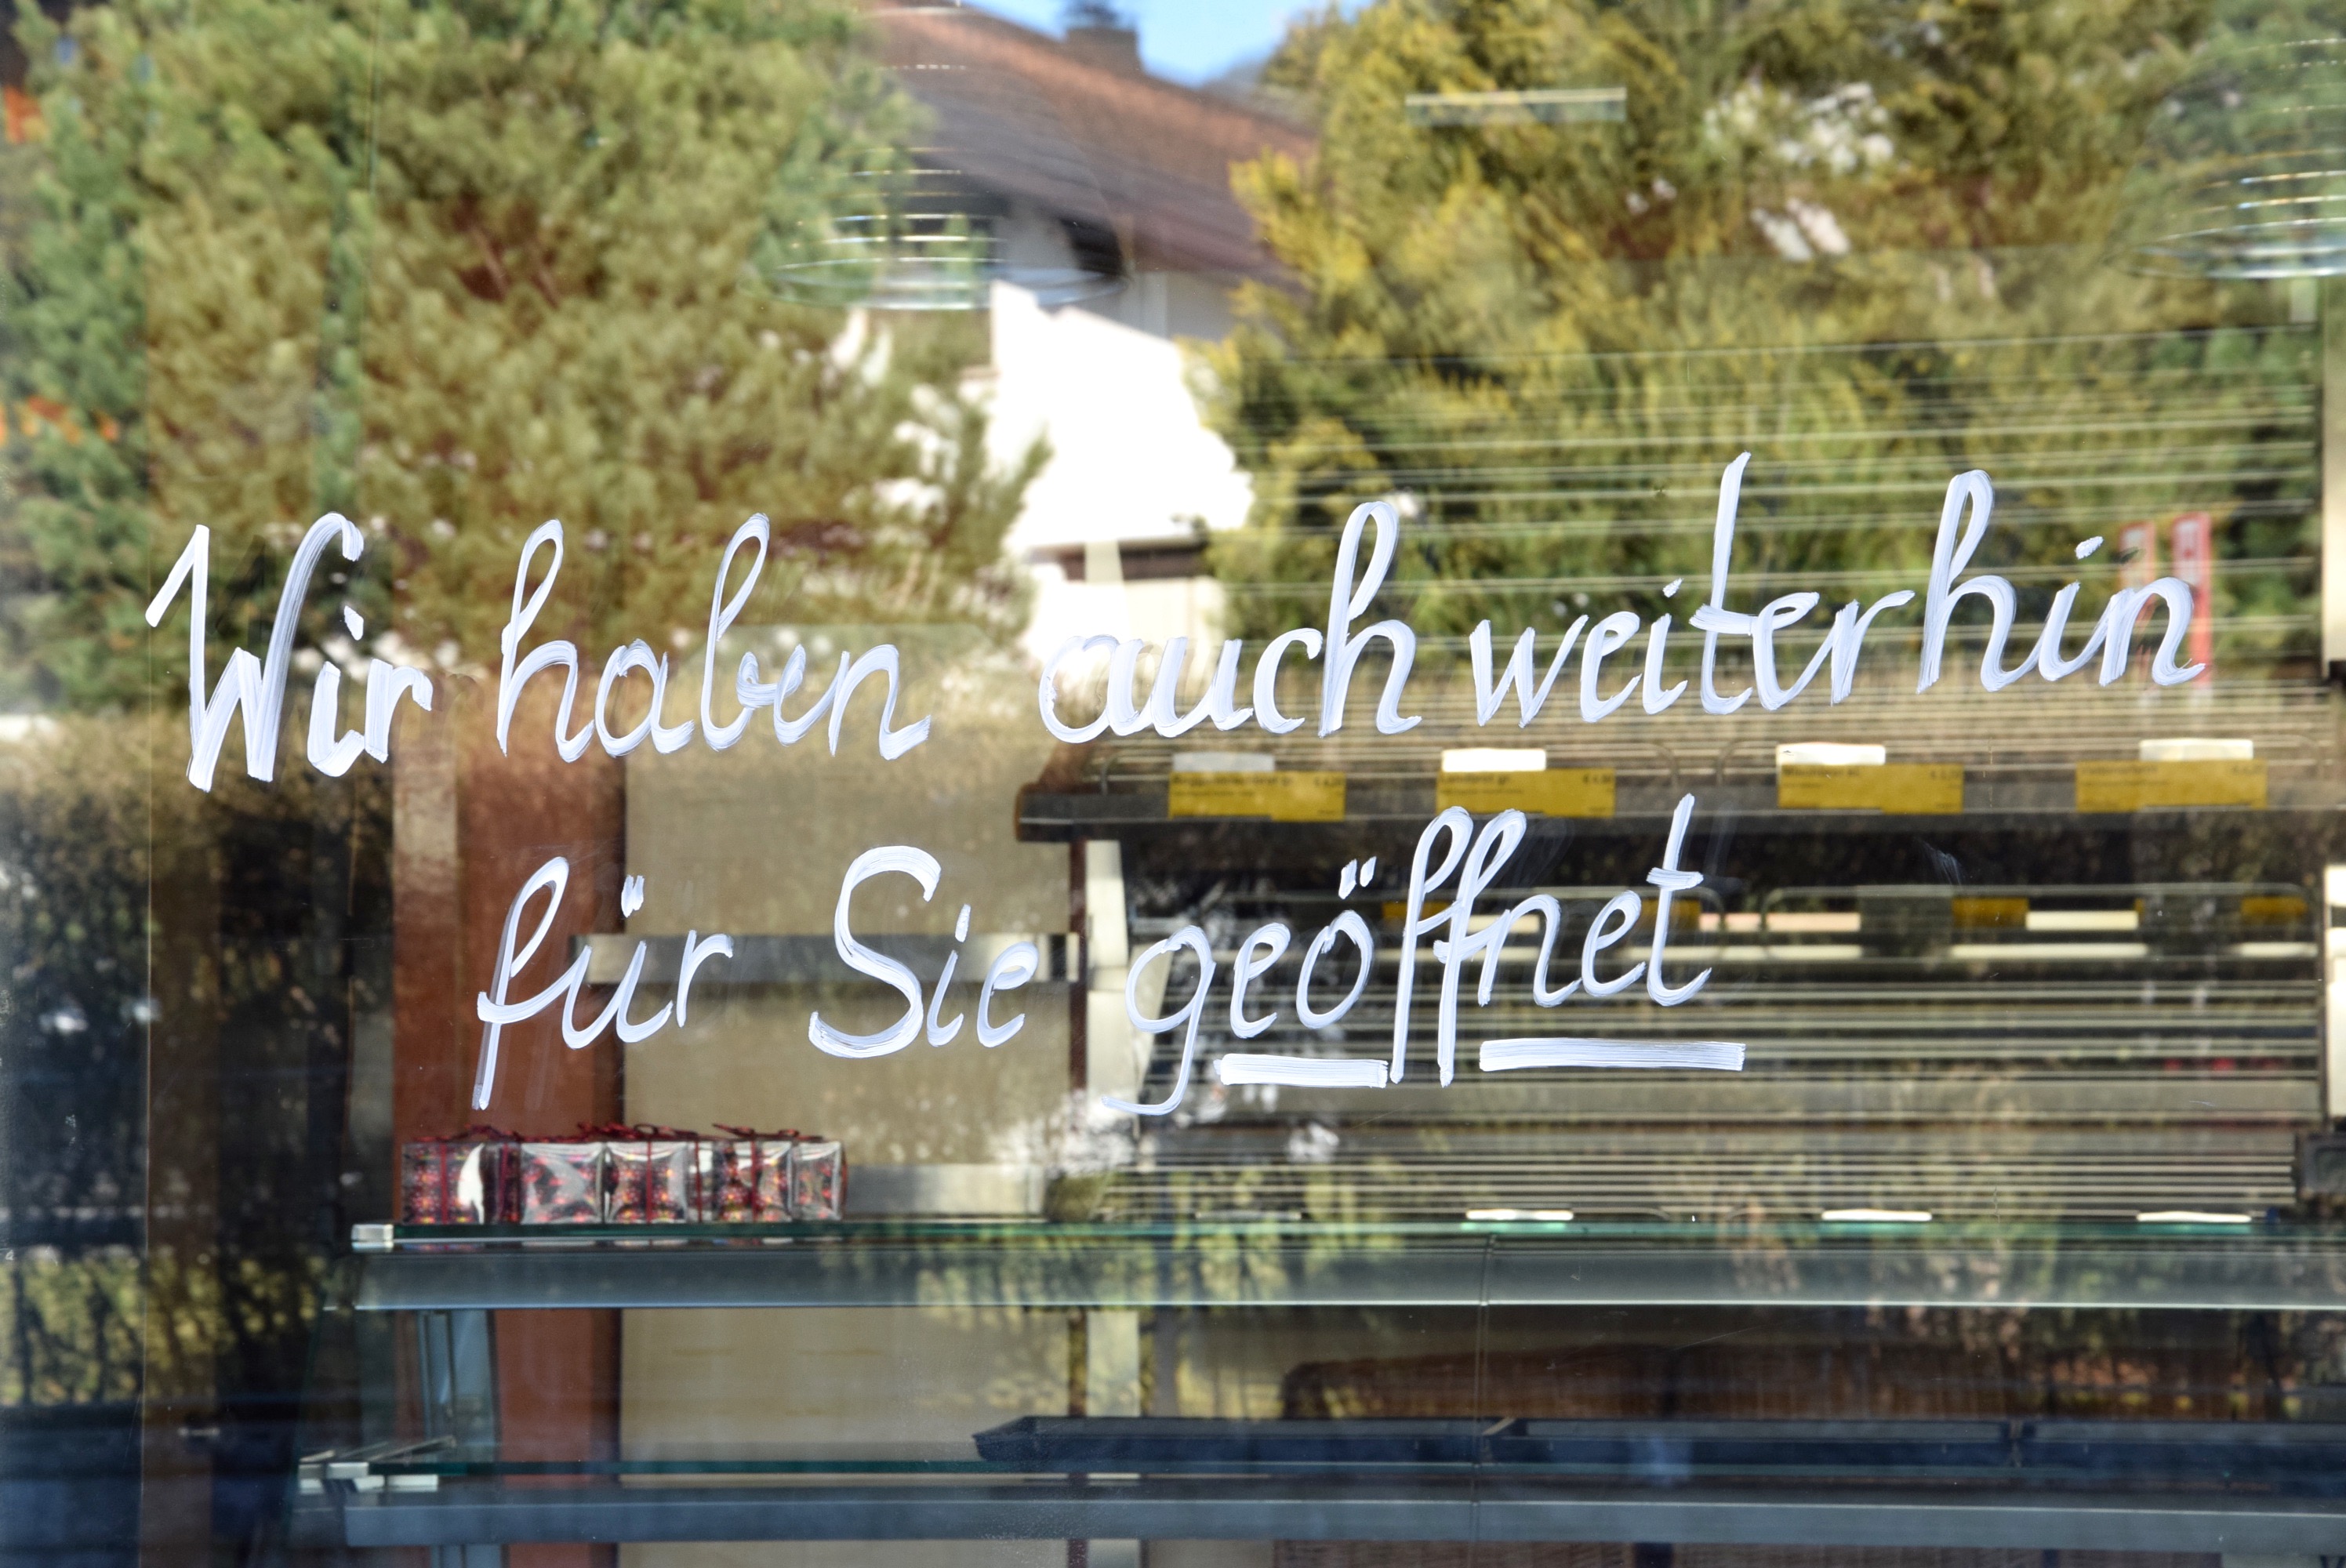 Wir haben auch weiterhin
für Sie geöffnet